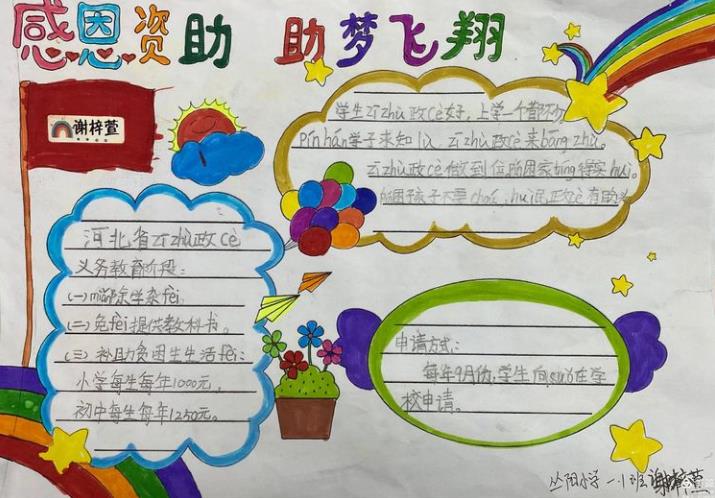 感恩资助 助梦飞翔
谢梓萱
学生zīzhù政cè好,上学一个都不
pín hán学子求知lù, zī zhù政cè来bāng zhù。
zī zhù政cè做到位,帮困家tíng得实huì。
困孩子不要chóu,huì民政cè有
河北省zīzhù政cè
义务教育阶段:
(一)miǎn除学杂fèi
(二)免fèi提供教科书。
(三)补助贫困生生活fèi:
小学每生每年1000元,
初中每生每年1250元。
申请方式:
每年9月份,学生向suǒ在学
校申请。
丛阳小学 一1班谢梓萱